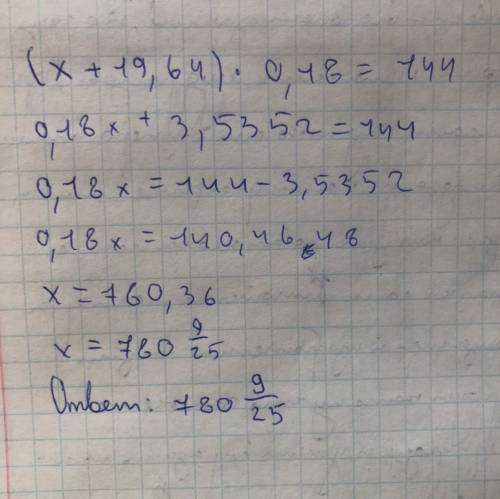 (x + 19,64) · 0,18 = 144
0,18x + 3,5352 = 144
0,18x = 144 - 3,5352
0,18x = 140,4648
x = 780,36
x = 780 9/25
Ответ: 780 9/25